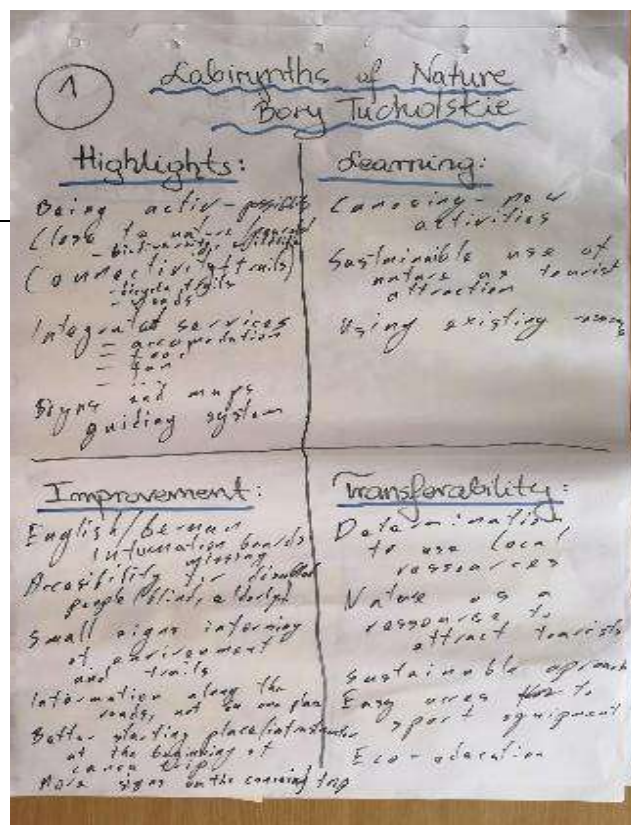 1
Labirynths of Nature
Bory Tucholskie
Highlights:
Being activ - possible
Close to nature
- biodiversity, wildlife
Connectivity (trails)
- bicycle trails
- roads
Integrated services
- accomodation
- food
- fun
- ...
Signs and maps
guiding system
Learning:
Canoeing - new
activities
Sustainable use of
nature as tourist
attraction
Using existing
Improvement:
English/German
information boards
missing
Accesibility for disabled
people (blind,
Small signs informing
of environment
and trails
Information along the
roads, not in one place
Better starting place/
at the beginning of
canoe trip
More signs on the canoeing trip
Transferability:
Determination
to use local
ressources
Nature as a
ressource to
attract tourists
Sustainable aproach
Easy acces to
sport equipment
Eco-education